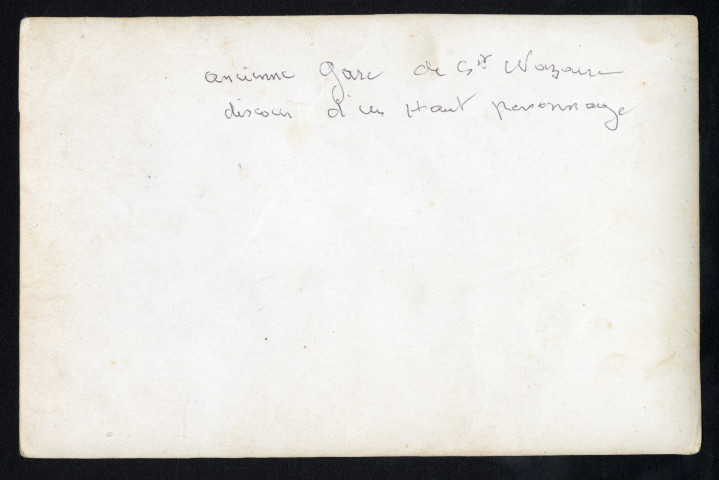 ancienne Gare de St Nazaire
discour d'un Haut personnage